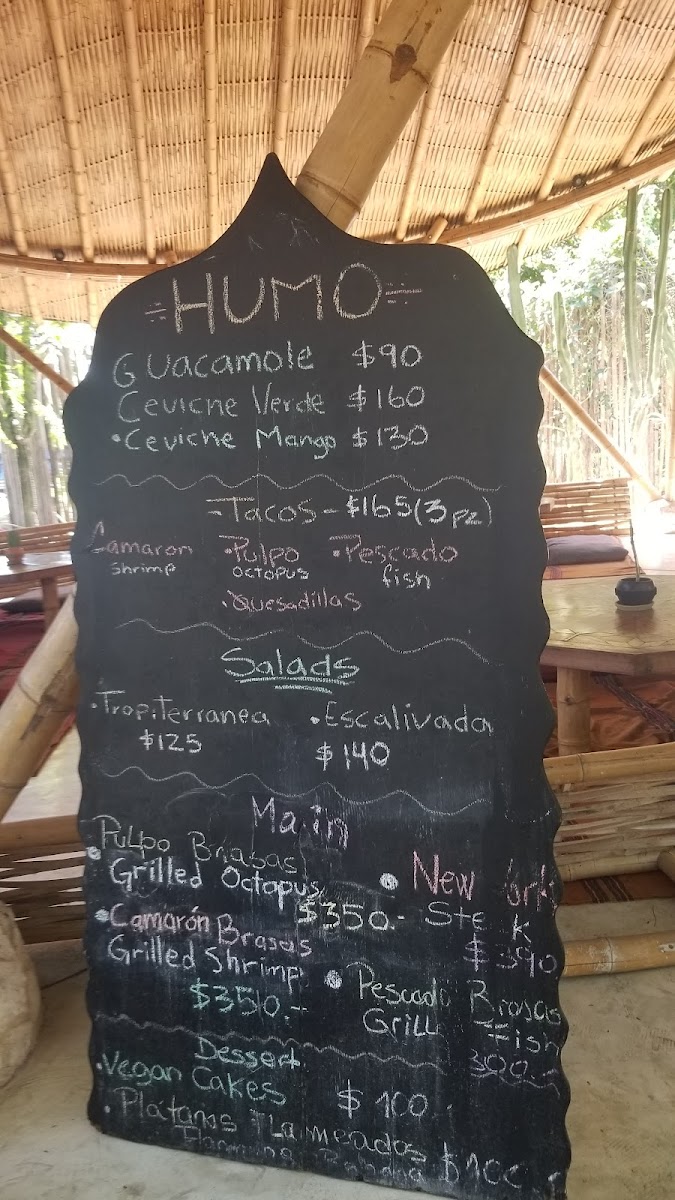 HUMO
Guacamole $90
Ceviche Verde $160
•Ceviche Mango $130
Tacos - $165 (3pz)
Camaron •Pulpo •Pescado
shrimp octopus fish
•Quesadillas
Salads
•Tropiterranea •Escalivada
$125 $140
Main
•Pulpo Brasas
Grilled Octopus
$350.-
•New York
Steak
$390
•Camarón Brasas
Grilled Shrimp
$350.-
•Pescado Brasas
Grill Fish
300.-
Dessert
•Vegan Cakes $100.-
•Plátanos Flameados
Banana $100